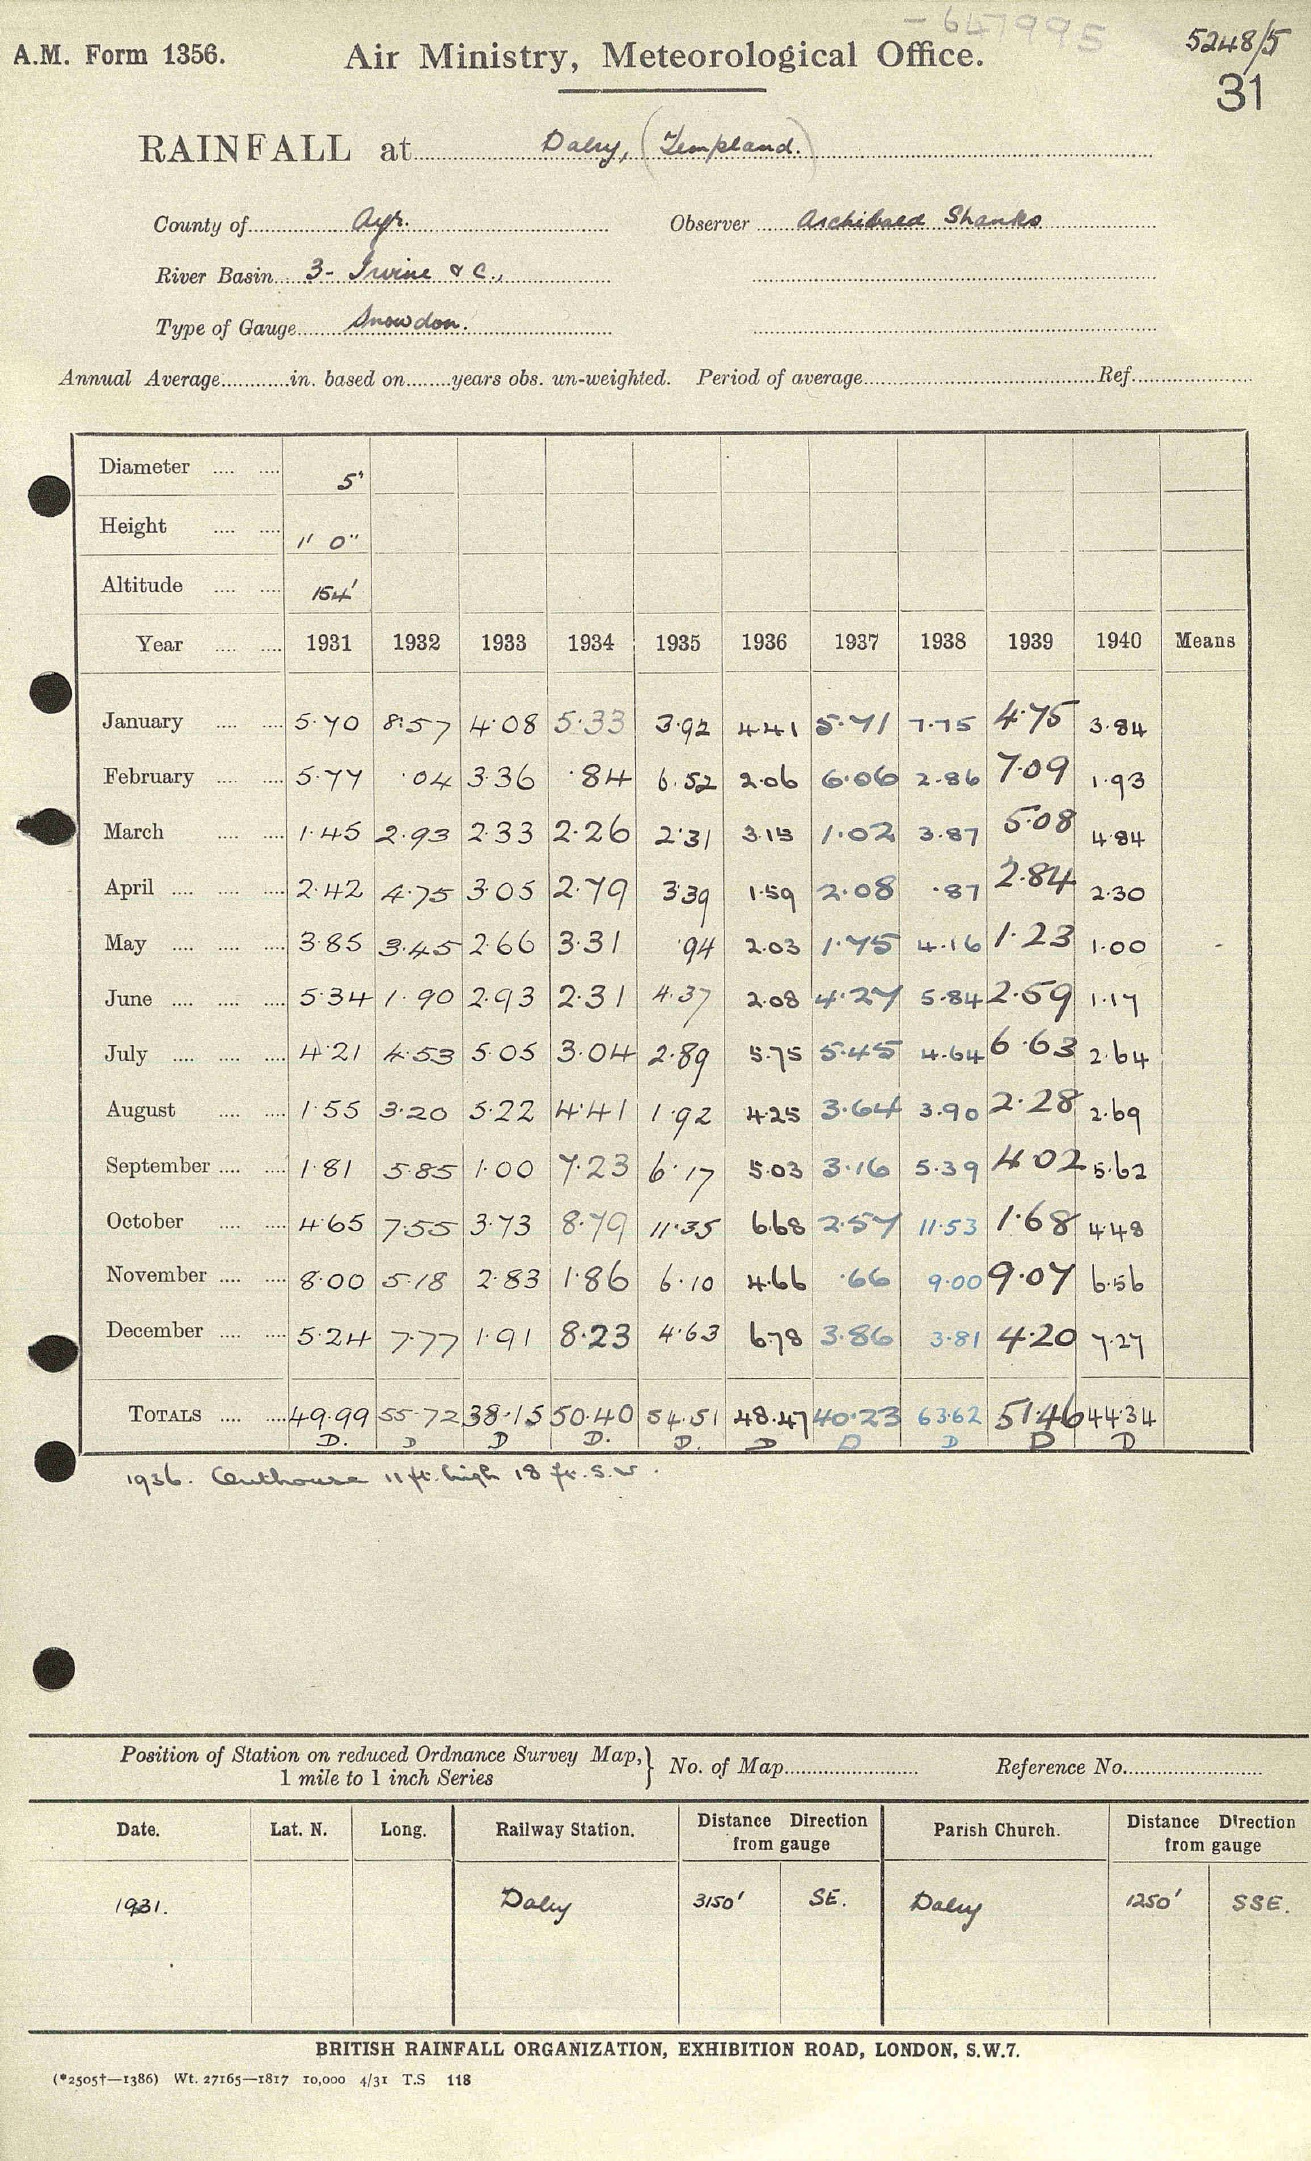 - 647995
A.M. Form 1356. Air Ministry, Meteorological Office. 5248/5
31
RAINFALL at Dalry, (Templand.)
County of Ayr. Observer Archibald Shanks
River Basin 3- Irvine & c.,
Type of Gauge Snowdon.
Annual Average in. based on years obs. un-weighted. Period of average Ref.
Diameter 5"
Height 1' 0"
Altitude 154'
Year 1931 1932 1933 1934 1935 1936 1937 1938 1939 1940 Means
January 5.70 8.57 4.08 5.33 3.92 4.41 5.71 7.75 4.75 3.84
February 5.77 .04 3.36 .84 6.52 2.06 6.06 2.86 7.09 1.93
March 1.45 2.93 2.33 2.26 2.31 3.15 1.02 3.87 5.08 4.84
April 2.42 4.75 3.05 2.79 3.39 1.59 2.08 .87 2.84 2.30
May 3.85 3.45 2.66 3.31 .94 2.03 1.75 4.16 1.23 1.00
June 5.34 1.90 2.93 2.31 4.37 2.08 4.27 5.84 2.59 1.17
July 4.21 4.53 5.05 3.04 2.89 5.75 5.45 4.64 6.63 2.64
August 1.55 3.20 5.22 4.41 1.92 4.25 3.64 3.90 2.28 2.69
September 1.81 5.85 1.00 7.23 6.17 5.03 3.16 5.39 4.02 5.62
October 4.65 7.55 3.73 8.79 11.35 6.68 2.57 11.53 1.68 4.48
November 8.00 5.18 2.83 1.86 6.10 4.66 .66 9.00 9.07 6.56
December 5.24 7.77 1.91 8.23 4.63 6.78 3.86 3.81 4.20 7.27
TOTALS 49.99 55.72 38.15 50.40 54.51 48.47 40.23 63.62 51.46 44.34
D. D D D. D. D D D D D
1936. Outhouse 11 ft. high 18 ft. S.W.
Position of Station on reduced Ordnance Survey Map,} No. of Map Reference No.
1 mile to 1 inch Series
Date. Lat. N. Long. Railway Station. Distance Direction from gauge Parish Church. Distance Direction from gauge
1931. Dalry 3150' SE. Dalry 1250' SSE.
BRITISH RAINFALL ORGANIZATION, EXHIBITION ROAD, LONDON, S.W.7.
(*2505†—1386) Wt. 27165—1817 10,000 4/31 T.S 118